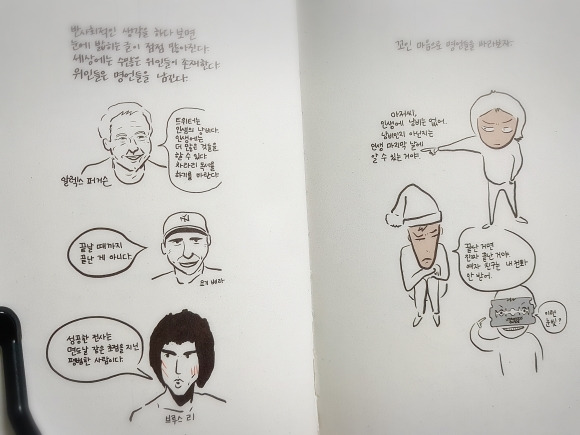 반사회적인 생각을 하다 보면
눈에 밟히는 글이 점점 많아진다.
세상에는 수많은 위인들이 존재한다.
위인들은 명언들을 남긴다.
트위터는
인생의 낭비다.
인생에는
더 많은 것들을
할 수 있다.
차라리 독서를
하기를 바란다.
알렉스 퍼거슨
끝날 때까지
끝난 게 아니다.
요기 베라
성공한 전사는
면도날 같은 초점을 지닌
평범한 사람이다.
브루스 리
꼬인 마음으로 명언들을 바라보자.
아저씨,
인생에 낭비는 없어.
낭비인지 아닌지는
인생 마지막 날에
알 수 있는 거야.
끝난 거면
진짜 끝난 거야.
여자 친구는 내 전화
안 받어.
이런
눈빛?